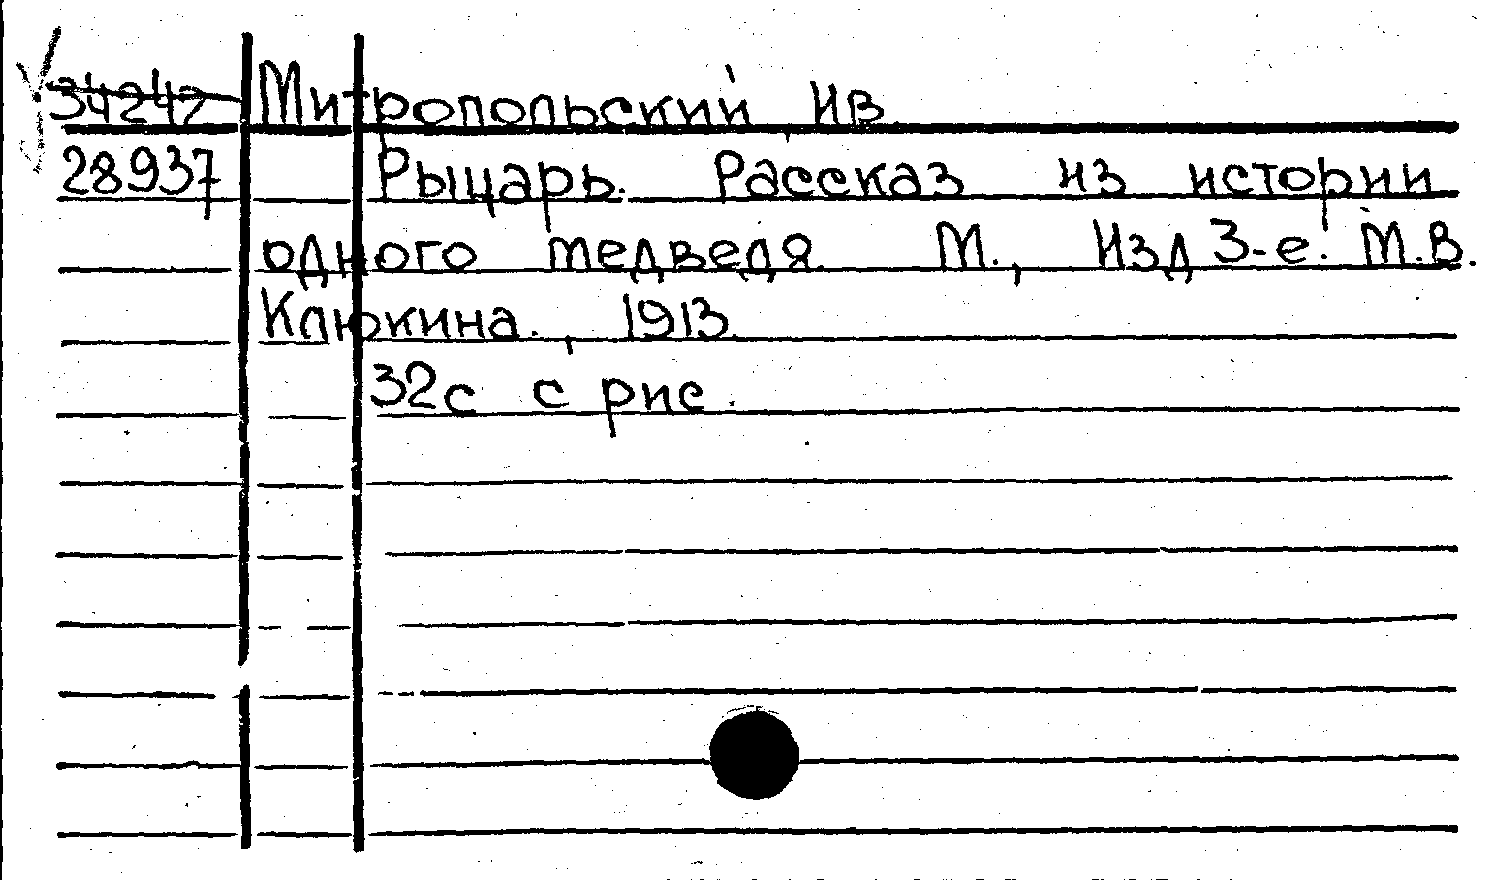 34242 Митропольский, Ив
28937 Рыцарь. Рассказ из истории
одного медведя. М., Изд 3-е. М.В.
Клюкина., 1913.
32с с рис.